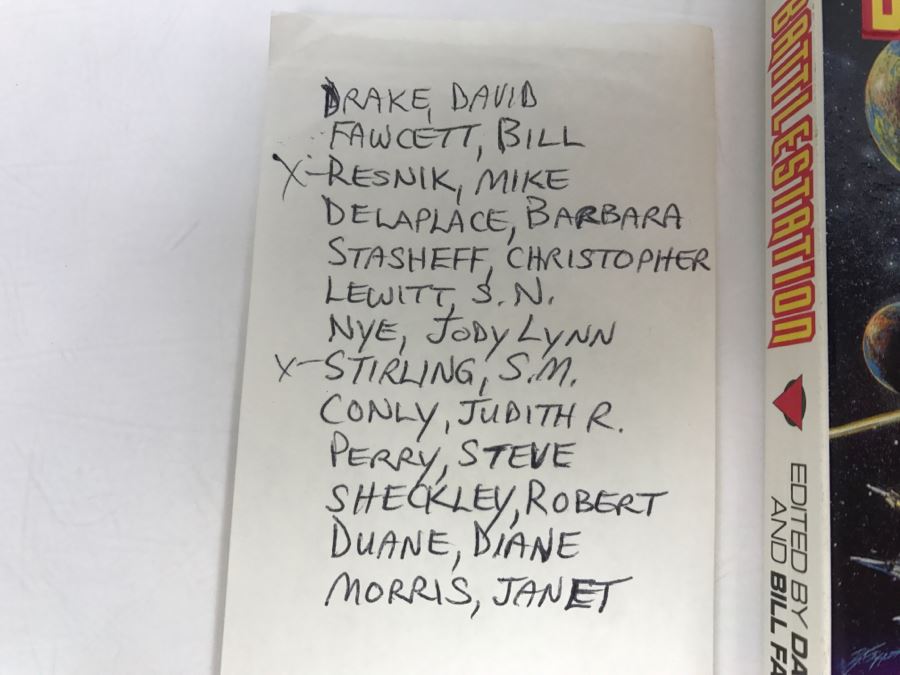 DRAKE, DAVID
FAWCETT, BILL
X-RESNIK, MIKE
DELAPLACE, BARBARA
STASHEFF, CHRISTOPHER
LEWITT, S.N.
NYE, JODY LYNN
X-STIRLING, S.M.
CONLY, JUDITH R.
PERRY, STEVE
SHECKLEY, ROBERT
DUANE, DIANE
MORRIS, JANET
BATTLESTATION
EDITED BY DA
AND BILL FA